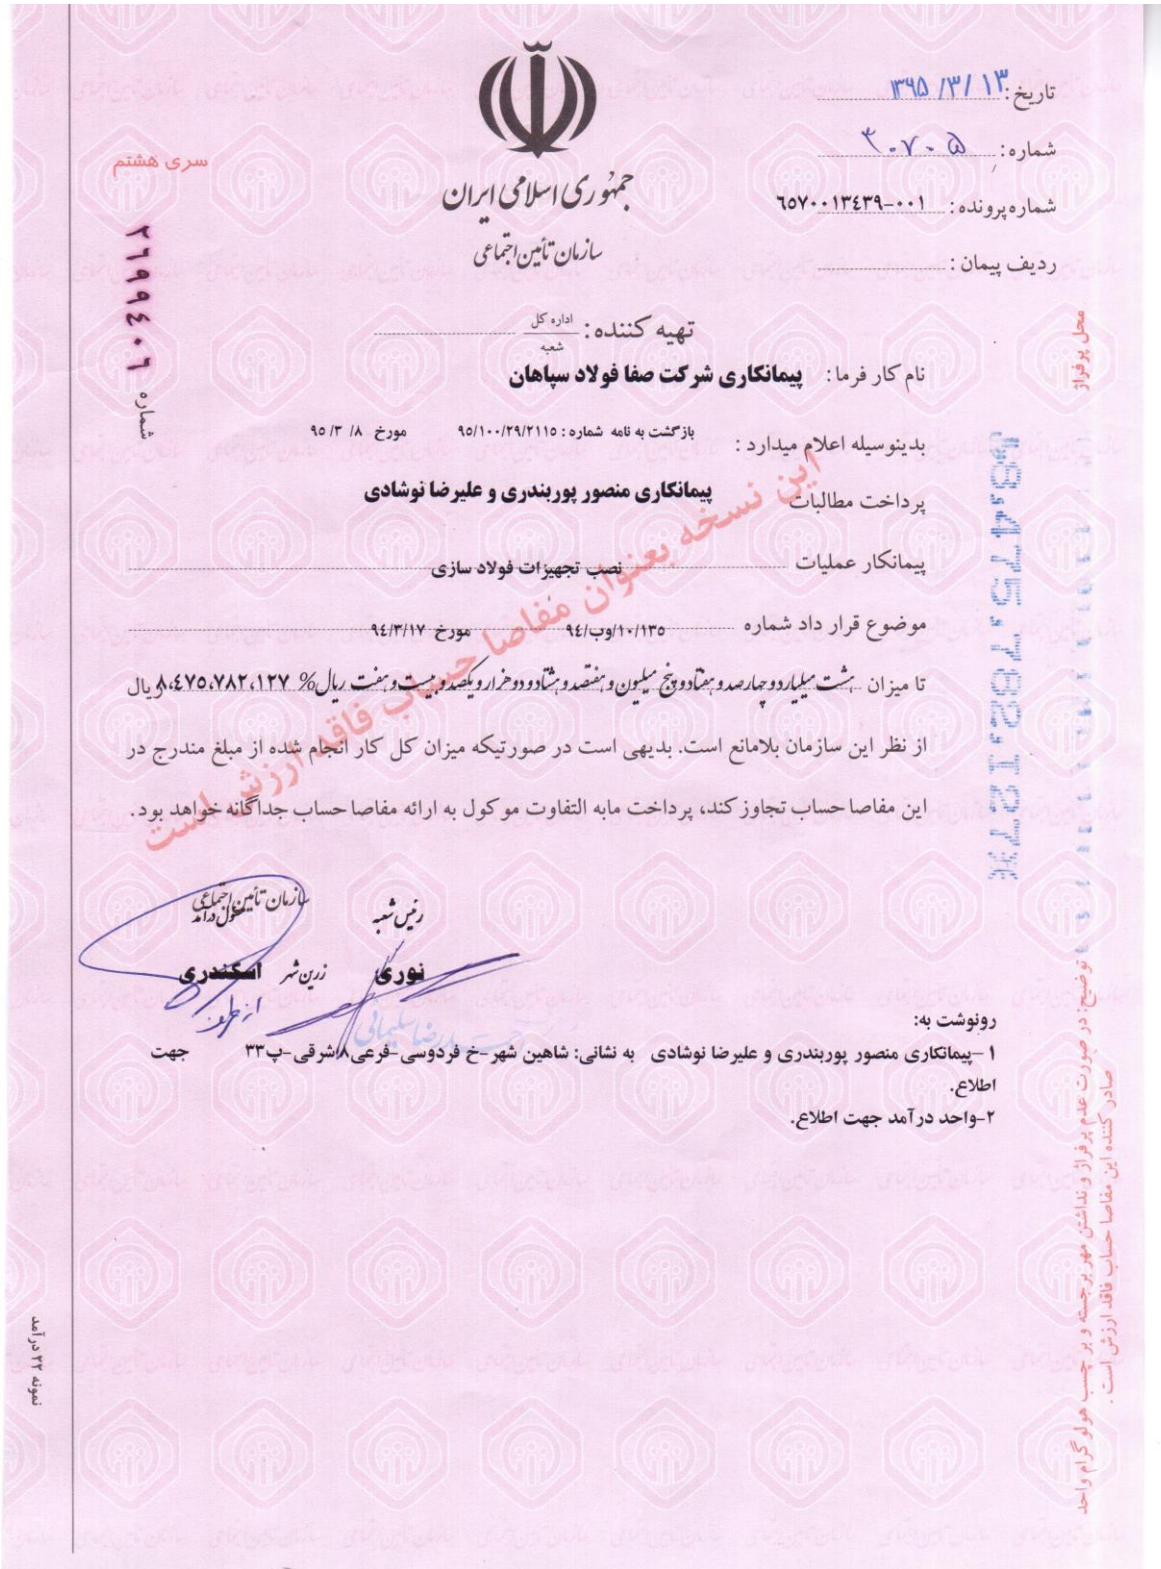 تاریخ: ۱۳۹۵/۳/۱۳
شماره: ۳۰۷۰۵
شماره پرونده: ٦٥٧٠٠١٣٤٣٩-٠٠١
ردیف پیمان:
سری هشتم
جمهوری اسلامی ایران
سازمان تأمین اجتماعی
شماره ٢٦٩٩٤٠٦
تهیه کننده: اداره کل
شعبه
نام کار فرما: پیمانکاری شرکت صفا فولاد سپاهان
بدینوسیله اعلام میدارد: بازگشت به نامه شماره: ٩٥/١٠٠/٢٩/٢١١٥ مورخ ٩٥/٣/٨
پرداخت مطالبات پیمانکاری منصور پوربندری و علیرضا نوشادی
پیمانکار عملیات نصب تجهیزات فولاد سازی
موضوع قرار داد شماره ٩٤/وب/١٠/١٣٥ مورخ ٩٤/٣/١٧
تا میزان هشت میلیارد و چهارصد و هفتاد و پنج میلیون و هفتصد و هشتاد و دو هزار و یکصد و بیست و هفت ریال% ٨،٤٧٥،٧٨٢،١٢٧ ریال
از نظر این سازمان بلامانع است. بدیهی است در صورتیکه میزان کل کار انجام شده از مبلغ مندرج در
این مفاصا حساب تجاوز کند، پرداخت مابه التفاوت موکول به ارائه مفاصا حساب جداگانه خواهد بود.
این نسخه بعنوان مفاصا حساب فاقد ارزش است
محل پرفراژ
سازمان تأمین اجتماعی
رئیس شعبه
نوری
زرین شهر
اسکندری
رونوشت به:
۱-پیمانکاری منصور پوربندری و علیرضا نوشادی به نشانی: شاهین شهر-خ فردوسی-فرعی۸شرقی-پ۳۳ جهت
اطلاع.
۲-واحد درآمد جهت اطلاع.
توضیح: در صورت عدم پرفراژ و نداشتن مهر برجسته و بر چسب هولوگرام واحد
صادر کننده این مفاصا حساب فاقد ارزش است.
نمونه ۲۲ درآمد